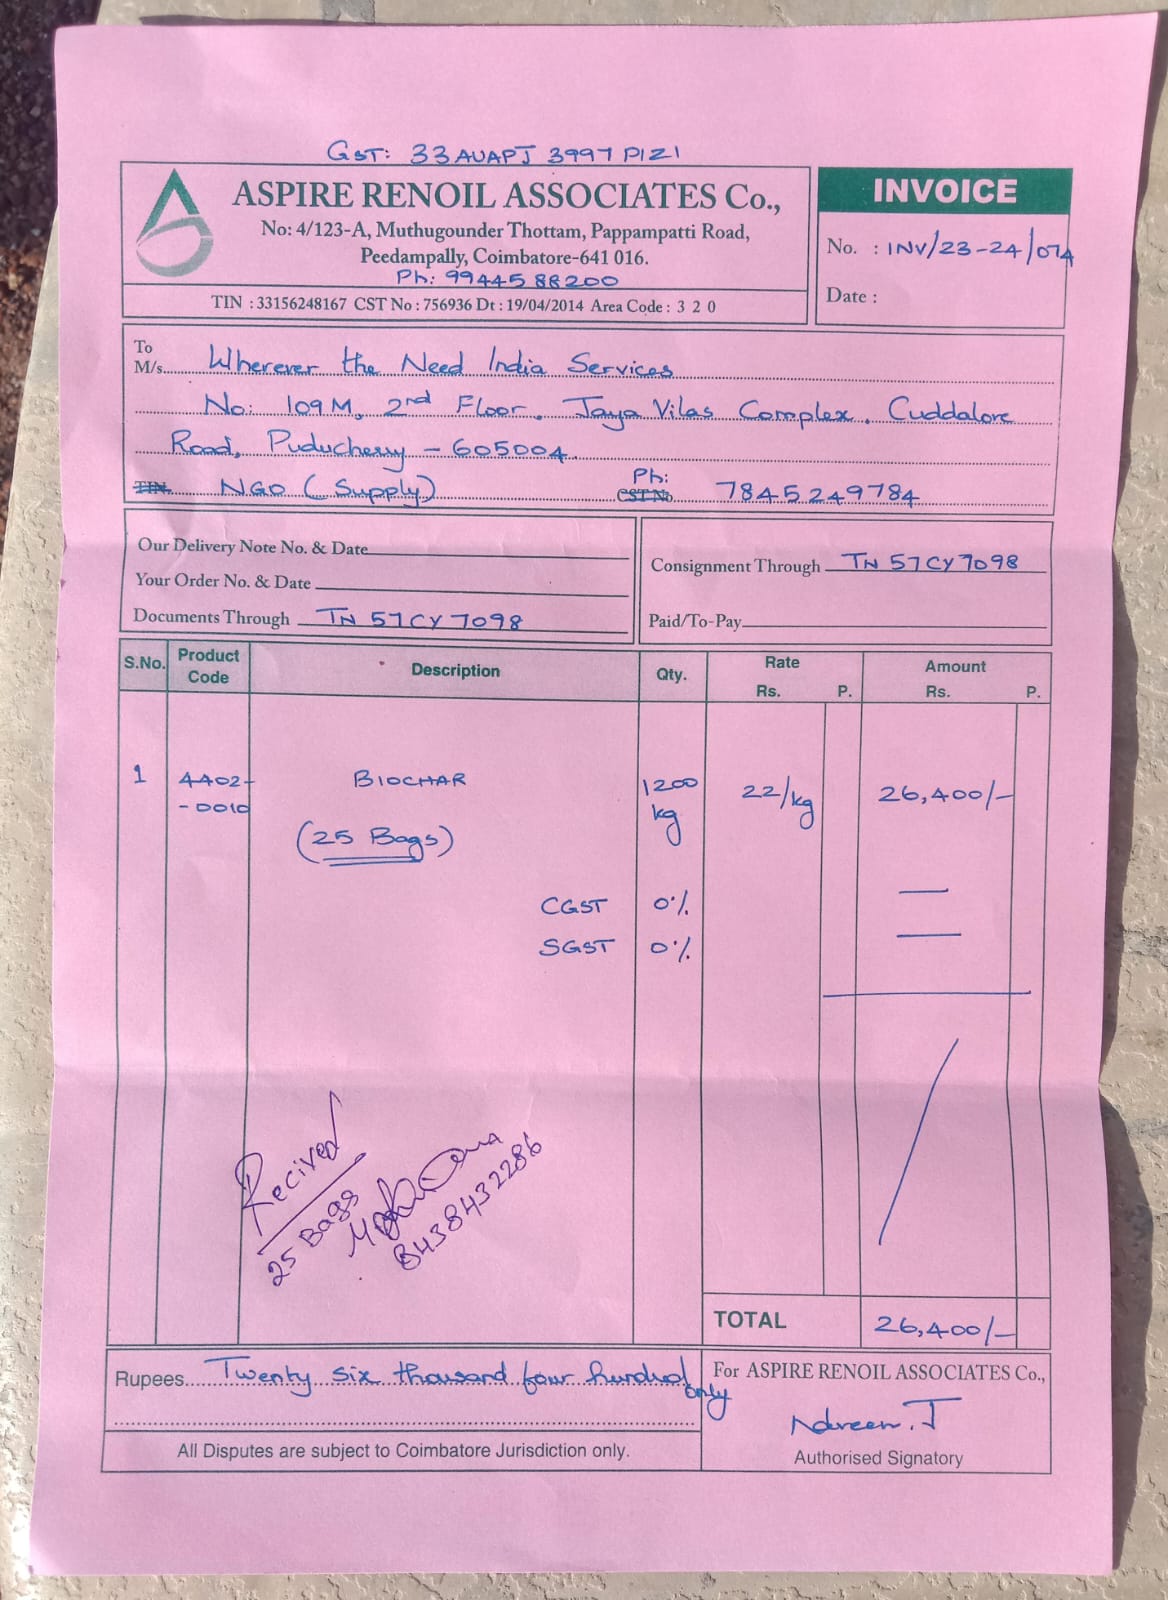 GST: 33AUAPJ 3997 P1Z1
ASPIRE RENOIL ASSOCIATES Co.,
No: 4/123-A, Muthugounder Thottam, Pappampatti Road,
Peedampally, Coimbatore-641 016.
Ph: 9944588200
TIN : 33156248167 CST No : 756936 Dt : 19/04/2014 Area Code : 3 2 0
INVOICE
No. : INV/23-24/074
Date :
To
M/s. Wherever the Need India Services
No: 109M, 2nd Floor, Jaya Vilas Complex, Cuddalore
Road, Puducherry - 605004.
TIN. NGO (Supply) CST No. Ph: 7845249784
Our Delivery Note No. & Date
Your Order No. & Date
Documents Through TN 57CY 7098
Consignment Through TN 57CY 7098
Paid/To-Pay
S.No. Product Code Description Qty. Rate Rs. P. Amount Rs. P.
1 4402- BIOCHAR 1200 22/kg 26,400/-
-0010 kg
(25 Bags)
CGST 0% —
SGST 0% —
Recived
25 Bags
8438432286
TOTAL 26,400/-
Rupees Twenty six thousand four hundred only
For ASPIRE RENOIL ASSOCIATES Co.,
Naveen. J
Authorised Signatory
All Disputes are subject to Coimbatore Jurisdiction only.